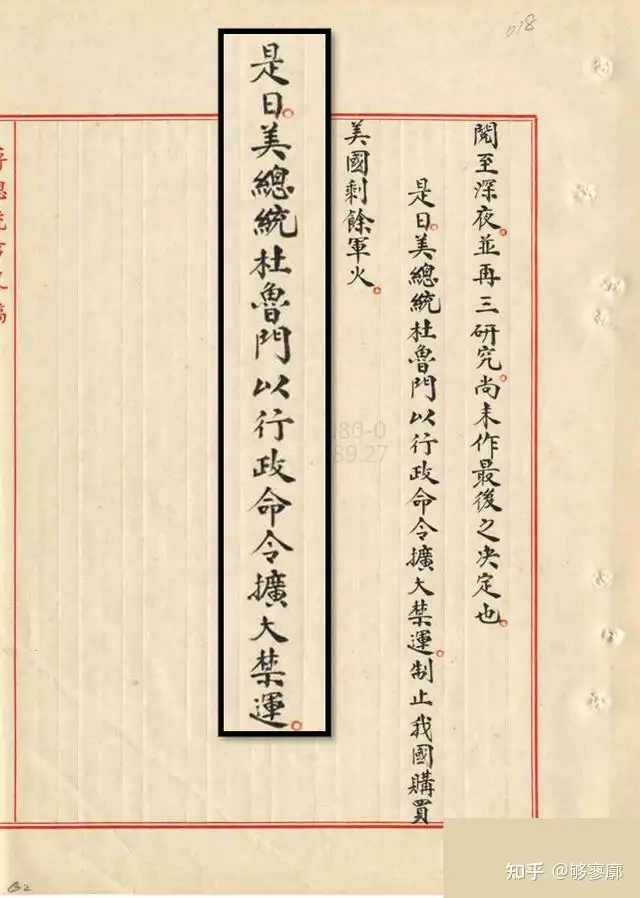 018
閱至深夜。並再三研究。尚未作最後之決定也。
是日。美總統杜魯門以行政命令擴大禁運。制止我國購買
美國剩餘軍火。
是日。美總統杜魯門以行政命令擴大禁運。
蔣總統事文稿
知乎 @够寥廓